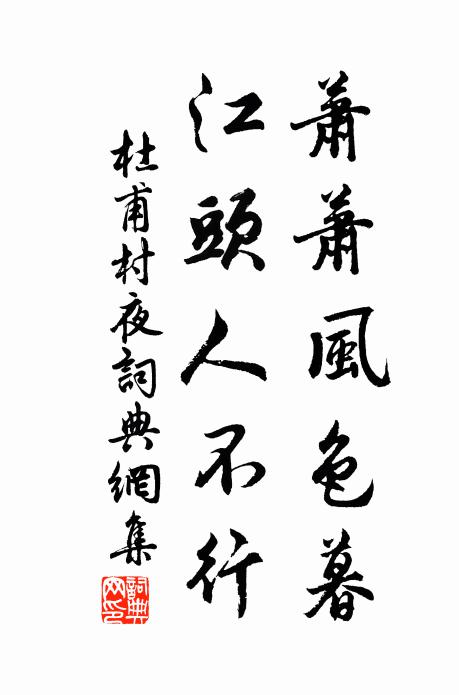 蕭蕭風色暮
江頭人不行
杜甫村夜詞典網集
詞典
网印